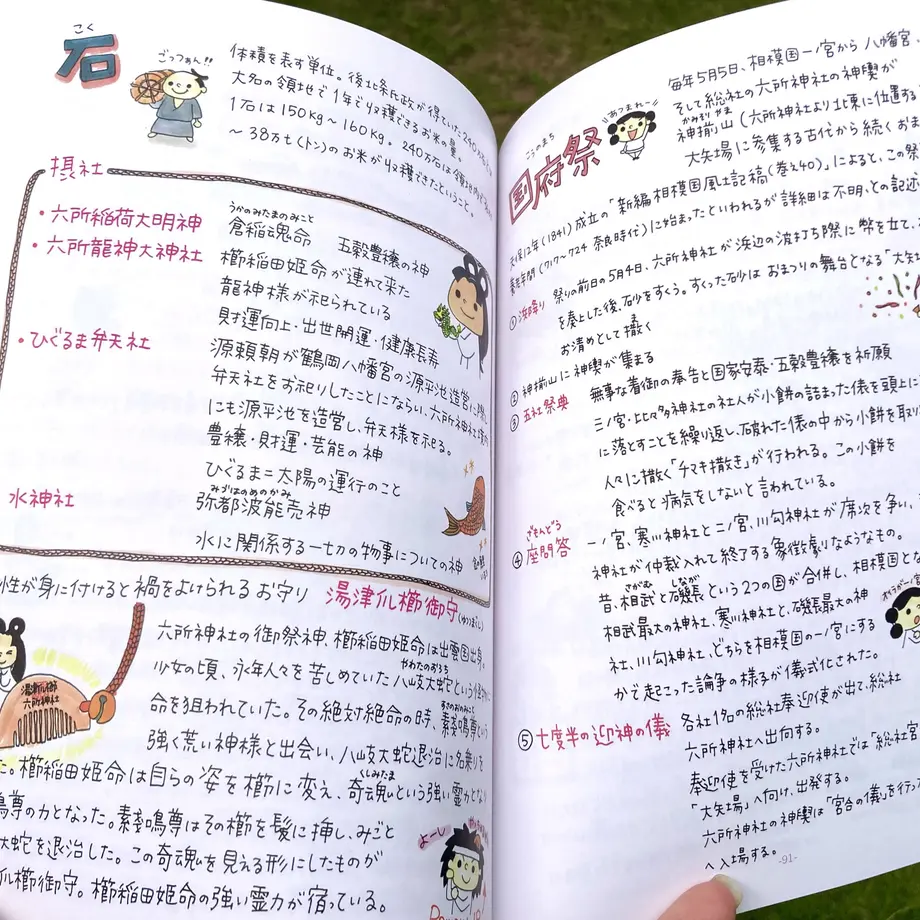 こく
石
ごっつぁん!!
体積を表す単位。後北条氏政が得ていた240万石
大名の領地で1年で収穫できるお米の量。
1石は150kg〜160kg。240万石は領地内で
〜38万t(トン)のお米が収穫できたということ。
摂社
・六所稲荷大明神
うかのみたまのみこと
倉稲魂命 五穀豊穣の神
・六所龍神大神社
櫛稲田姫命が連れて来た
龍神様が祀られている
財運向上・出世開運・健康長寿
・ひぐるま弁天社
源頼朝が鶴岡八幡宮の源平池造営に際し
弁天社をお祀りしたことにならい、六所神社境内
にも源平池を造営し、弁天様を祀る。
豊穣・財運・芸能の神
ひぐるま=太陽の運行のこと
水神社
みづはのめのかみ
弥都波能売神
水に関係する一切の物事についての神
性が身に付けると禍をよけられるお守り 湯津爪櫛御守(ゆつつまぐし)
六所神社の御祭神、櫛稲田姫命は出雲国出身。
やわたのおろち
少女の頃、永年人々を苦しめていた八岐大蛇という怪物に
すさのおのみこと
命を狙われていた。その絶対絶命の時、素戔嗚尊という
強く荒い神様と出会い、八岐大蛇退治に名乗りを
た。櫛稲田姫命は自らの姿を櫛に変え、奇魂という強い霊力となり
くしみたま
鳴尊の力となった。素戔嗚尊はその櫛を髪に挿し、みごと
大蛇を退治した。この奇魂を見える形にしたものが
爪櫛御守。櫛稲田姫命の強い霊力が宿っている。
湯津爪櫛
六所神社
よーし
こうのまち
国府祭
あつまれ〜
毎年5月5日、相模国一ノ宮から八幡宮、
そして総社の六所神社の神輿が
かみそりやま
神揃山(六所神社より北東に位置する)
大矢場に参集する古代から続くおま
天保12年(1841)成立の「新編相模国風土記稿(巻之40)」によると、この祭
養老年間(717〜724 奈良時代)に始まったといわれるが詳細は不明、との記述
①浜降り 祭りの前日の5月4日、六所神社が浜辺の波打ち際に幣を立て、
を奏上した後、砂をすくう。すくった砂はおまつりの舞台となる「大矢場」
お清めとして撒く
②神揃山に神輿が集まる
③五社祭典 無事な着御の奉告と国家安泰・五穀豊穣を祈願
三ノ宮・比々多神社の社人が小餅の詰まった俵を頭上に
に落とすことを繰り返し、破れた俵の中から小餅を取り
人々に撒く「チマキ撒き」が行われる。この小餅を
食べると病気をしないと言われている。
ざもんどう
④座問答
一ノ宮、寒川神社と二ノ宮、川勾神社が席次を争い、
神社が仲裁に入れて終了する象徴劇なようなもの。
さがむ しなが
昔、相武と磯長という2つの国が合併し、相模国とな
相武最大の神社、寒川神社と、磯長最大の神
社、川勾神社、どちらを相模国の一ノ宮にする
かで起こった論争の様子が儀式化された。
⑤七度半の迎神の儀 各社1名の総社奉迎使が出て、総社
六所神社へ出向する。
奉迎使を受けた六所神社では「総社宮
「大矢場」へ向け、出発する。
六所神社の神輿は「宮合の儀」を行っ
へ入場する。
-91-